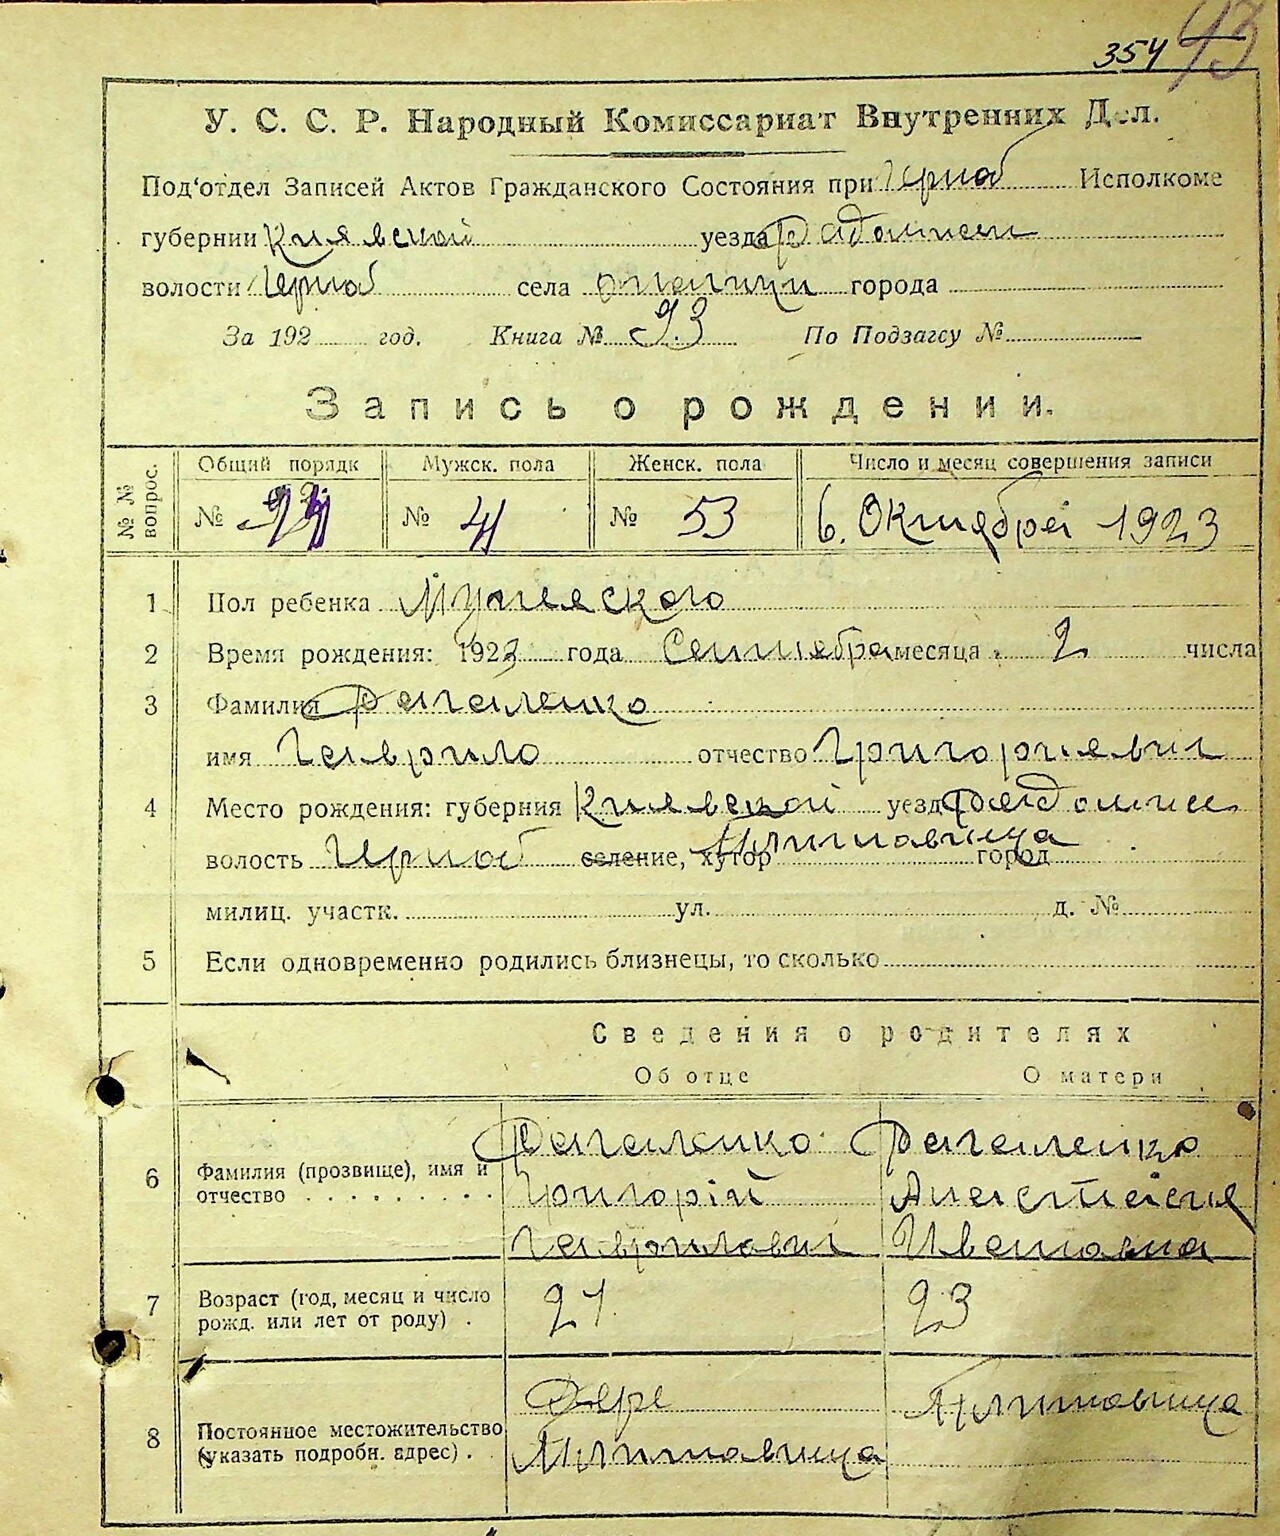 354 93
У. С. С. Р. Народный Комиссариат Внутренних Дел.
Под'отдел Записей Актов Гражданского Состояния при Черноб Исполкоме
губернии Киевской уезда Радомысл
волости Черноб села города
За 192 год. Книга № 93 По Подзагсу №
Запись о рождении.
№ № вопрос. Общий порядк Мужск. пола Женск. пола Число и месяц совершения записи
№ № 41 № 53 6. Октября 1923
1 Пол ребенка Мужеского
2 Время рождения: 1923 года Сентебра месяца 2 числа
3 Фамилия Рагаленко
имя Гаврило отчество Григориевич
4 Место рождения: губерния Киевской уезд
волость Черноб селение, хутор город
милиц. участк. ул. д. №
5 Если одновременно родились близнецы, то сколько
Сведения о родителях
Об отце О матери
6 Фамилия (прозвище), имя и отчество Рагаленко Рагаленко
Григорій Анастасия
Гаврилович Ивановна
7 Возраст (год, месяц и число рожд. или лет от роду) 21 23
8 Постоянное местожительство (указать подробн. адрес)